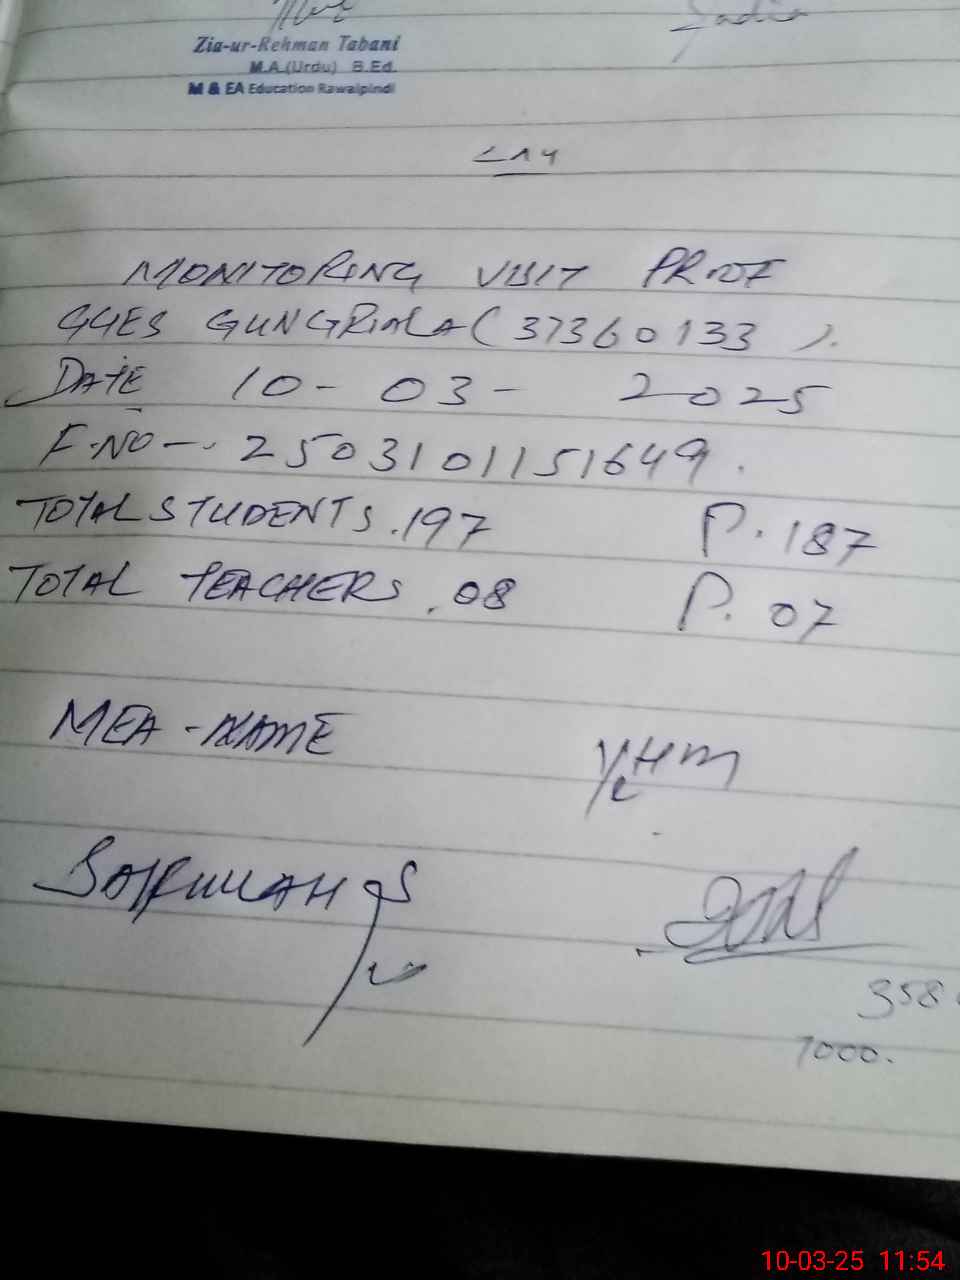 Zia-ur-Rehman Tabani
M.A.(Urdu) B.Ed.
M & EA Education Rawalpindi
MONITORING VISIT PROOF
GGES GUNGRILA (37360133).
DATE 10-03-2025
F.NO-. 2503101151649.
TOTAL STUDENTS.197 P.187
TOTAL TEACHERS.08 P.07
MEA-NAME
358
7000.
10-03-25 11:54